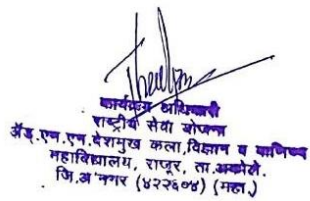 कार्यक्रम अधिकारी
राष्ट्रीय सेवा योजना
ॲड.एम.एन.देशमुख कला,विज्ञान व वाणिज्य
महाविद्यालय, राजूर, ता.अकोले.
जि.अ'नगर (४२२६०४) (महा.)